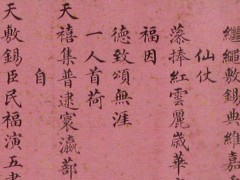 繼繩敷錫典維嘉
仙仗
蔭捧紅雲麗嵗華
福因
德致頌無涯
一人首荷
天禧集普逮寰瀛蔀
自
天敷錫臣民福演五